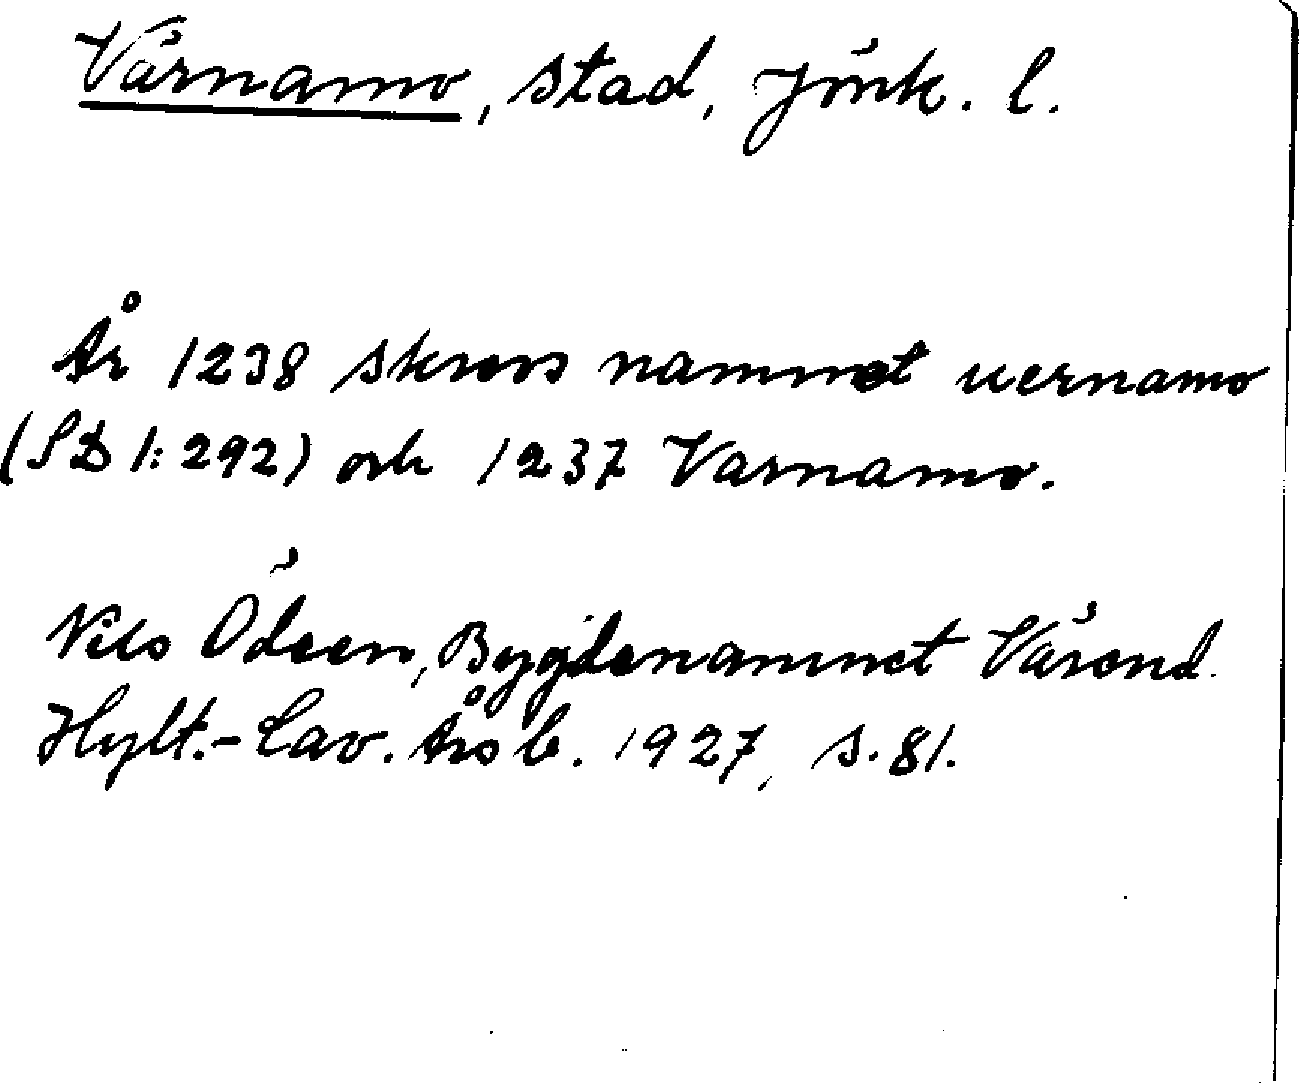 Värnamo, stad, Jönk. l.
År 1238 skrevs namnet uernamo
(SD 1:292) och 1237 Varnamo.
Nils Ödeen, Bygdenamnet Värend.
Hylt.-Cav. Årsb. 1927, s. 81.